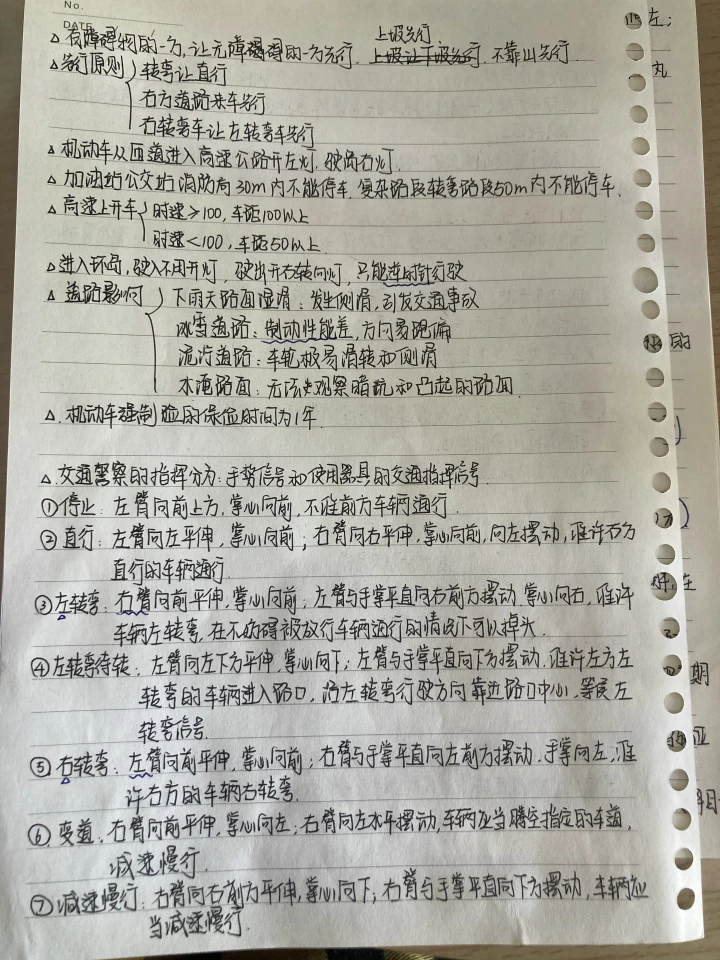 No.
DATE
上坡先行.
△ 有障碍物的一方,让无障碍的一方先行. 上坡让下坡先行. 不靠山先行
△ 先行原则 转弯让直行
右方道路来车先行
右转弯车让左转弯车先行
△ 机动车从匝道进入高速公路开左灯. 驶离右灯.
△ 加油站公交站消防局30m内不能停车. 复杂路段转弯路段50m内不能停车.
△ 高速上开车 时速≥100, 车距100以上
时速<100, 车距50以上.
△ 进入环岛, 驶入不用开灯, 驶出开右转向灯, 只能逆时针行驶
△ 道路影响 下雨天路面湿滑: 发生侧滑, 引发交通事故
冰雪道路: 制动性能差, 方向易跑偏
泥泞道路: 车轮极易滑转和侧滑
水淹路面: 无法观察暗坑和凸起的路面.
△. 机动车强制险的保险时间为1年.
△ 交通警察的指挥分为: 手势信号和使用器具的交通指挥信号.
①停止: 左臂向前上方, 掌心向前, 不准前方车辆通行.
②直行: 左臂向左平伸, 掌心向前; 右臂向右平伸, 掌心向前, 向左摆动, 准许右方
直行的车辆通行.
③左转弯: 右臂向前平伸, 掌心向前; 左臂与手掌平直向右前方摆动, 掌心向右, 准许
车辆左转弯, 在不妨碍被放行车辆通行的情况下可以掉头.
④左转弯待转: 左臂向左下方平伸, 掌心向下; 左臂与手掌平直向下方摆动. 准许左方左
转弯的车辆进入路口, 沿左转弯行驶方向靠近路口中心, 等候左
转弯信号.
⑤右转弯: 左臂向前平伸, 掌心向前; 右臂与手掌平直向左前方摆动. 手掌向左, 准
许右方的车辆右转弯.
⑥变道: 右臂向前平伸, 掌心向左; 右臂向左水平摆动, 车辆应当腾空指定的车道,
减速慢行.
⑦减速慢行: 右臂向右前方平伸, 掌心向下; 右臂与手掌平直向下方摆动, 车辆应
当减速慢行.
左;
丸
的
在
期
证